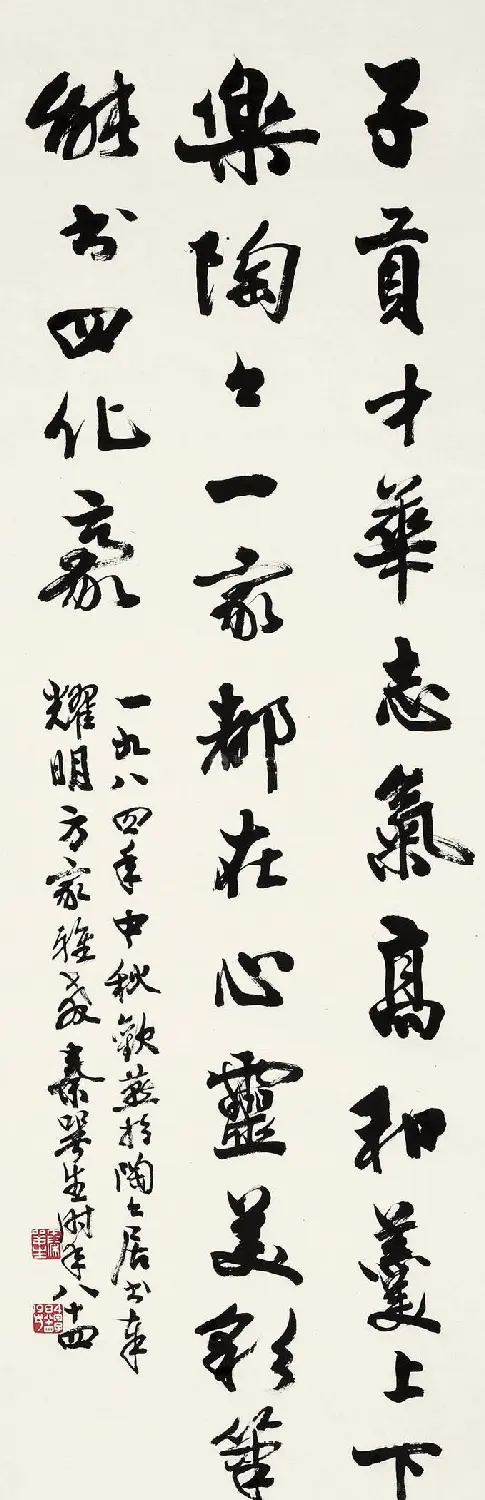 子貢才華志氣高和羹上下
樂陶々一家都在心靈美彩筆
能書四化豪
一九八四年中秋歡燕於陶々居書奉
耀明方家雅教秦咢生時年八十四